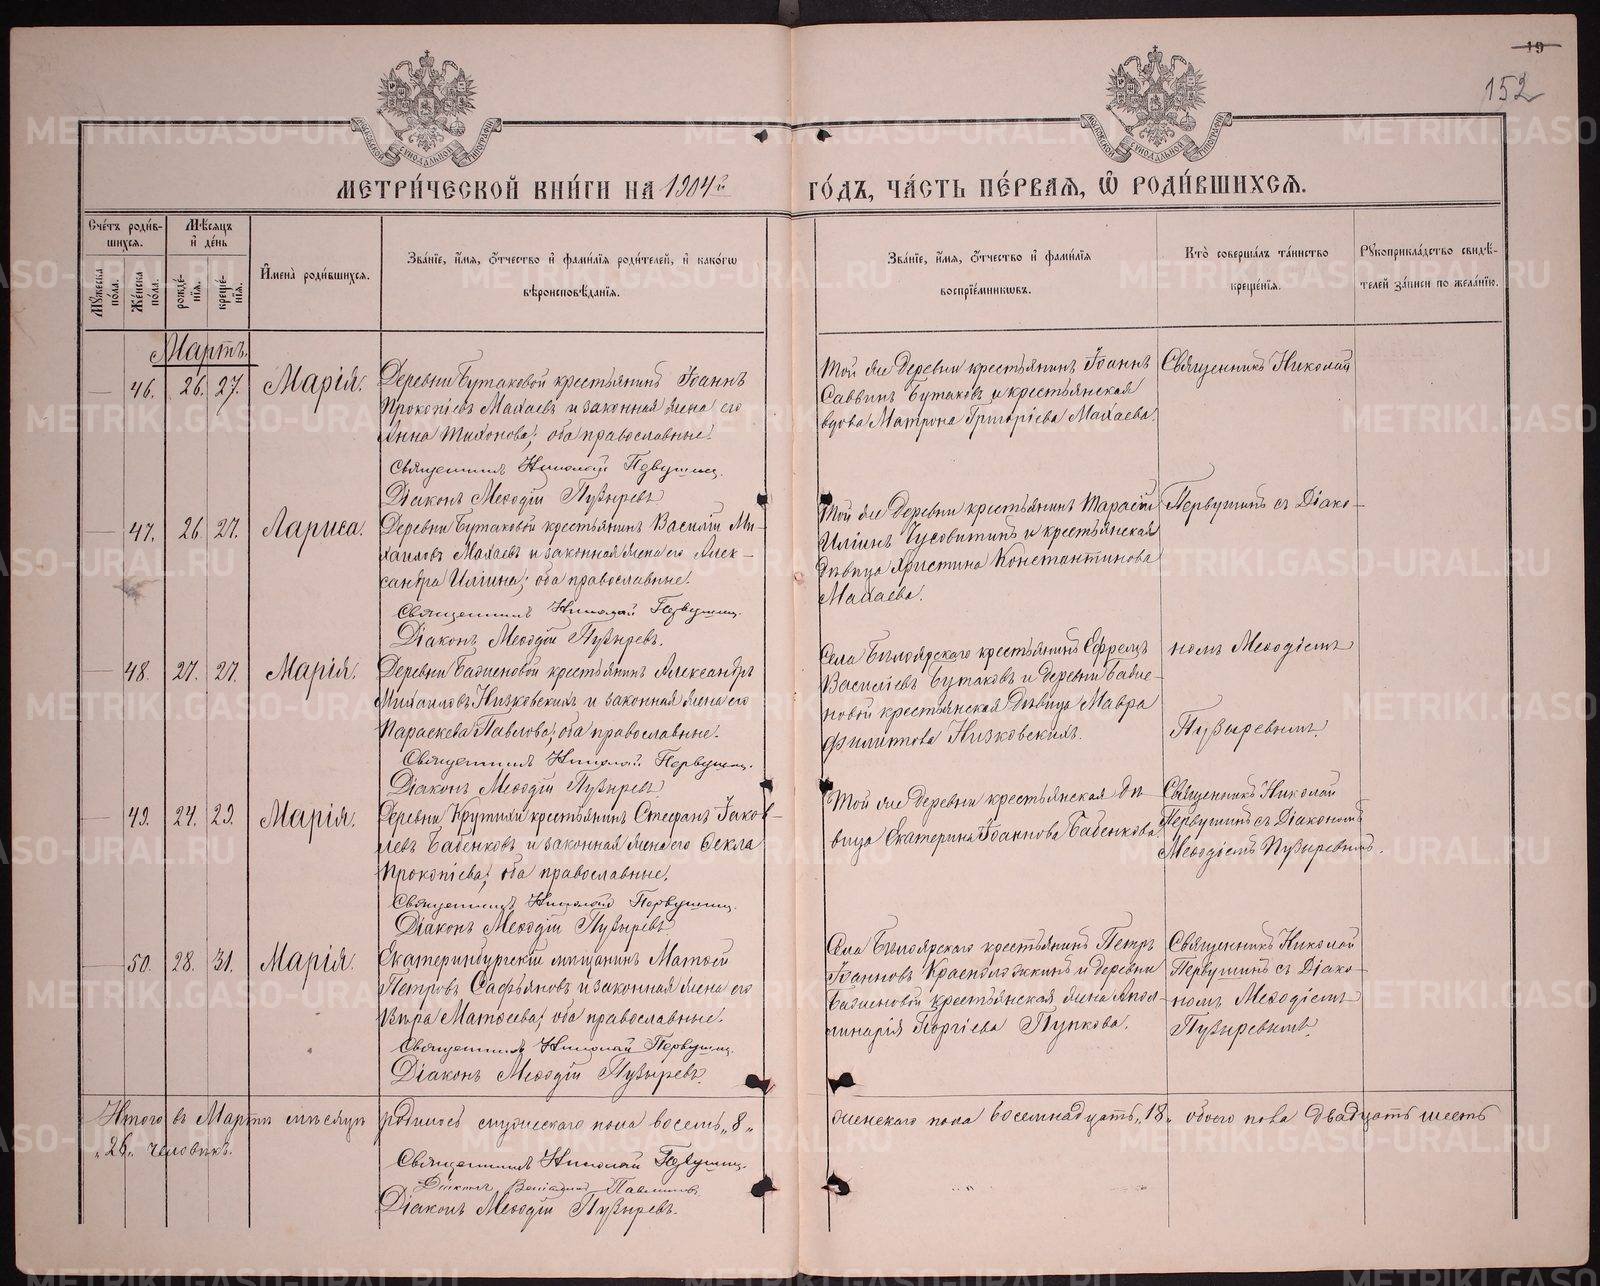 19
152
МЕТРИ́ЧЕСКОЙ КНИ́ГИ НА 1904й ГО́ДЪ, ЧА́СТЬ ПЕ́РВАЯ, Ѽ РОДИ́ВШИХСЯ.
Сче́тъ роди́в-
шихся.
Мѣ́сяцъ
и҆ де́нь
Му́жеска
по́ла.
Же́нска
по́ла.
рожде́-
нїя.
креще́-
нїя.
И҆мена̀ роди́вшихся.
Зва́нїе, и҆́мя, ѻ҆́тчество и҆ фами́лїя роди́телей, и҆ како́гѡ
вѣроисповѣ́данїя.
Зва́нїе, и҆́мя, ѻ҆́тчество и҆ фами́лїя
воспрїе́мникѡвъ.
Кто̀ соверша́лъ та́инство
креще́нїя.
Рꙋкоприкла́дство свидѣ́-
телей за́писи по жела́нїю.
Мартъ.
46. 26. 27. Марія.
Деревни Бутаковой крестьянинъ Іоаннъ
Прокопіевъ Махаевъ и законная жена его
Анна Тихонова; оба православные.
Священникъ Николай Первушинъ
Діаконъ Меѳодій Пузыревъ
Той же деревни крестьянинъ Іоаннъ
Саввинъ Бутаковъ и крестьянская
вдова Матрона Григоріева Махаева.
Священникъ Николай
47. 26. 27. Лариса.
Деревни Бутаковой крестьянинъ Василій Ми-
хаиловъ Махаевъ и законная жена его Алек-
сандра Иліина; оба православные.
Священникъ Николай Первушинъ.
Діаконъ Меѳодій Пузыревъ.
Той же деревни крестьянинъ Тарасій
Иліинъ Чусовитинъ и крестьянская
дѣвица Христина Константинова
Махаева.
Первушинъ съ Діако-
48. 27. 27. Марія.
Деревни Баженовой крестьянинъ Александръ
Михаиловъ Низковскихъ и законная жена его
Параскева Павлова; оба православные.
Священникъ Николай Первушинъ.
Діаконъ Меѳодій Пузыревъ
Села Бѣлоярскаго крестьянинъ Ефремъ
Василіевъ Бутаковъ и деревни Баже-
новой крестьянская дѣвица Мавра
Филиппова Низковскихъ.
номъ Меѳодіемъ
Пузыревымъ.
49. 24. 29. Марія.
Деревни Крутихи крестьянинъ Стефанъ Іаков-
левъ Бабенковъ и законная жена его Ѳекла
Прокопіева; оба православные.
Священникъ Николай Первушинъ.
Діаконъ Меѳодій Пузыревъ
Той же деревни крестьянская дѣ-
вица Екатерина Іоаннова Бабенкова.
Священникъ Николай
Первушинъ съ Діакономъ
Меѳодіемъ Пузыревымъ.
50. 28. 31. Марія.
Екатеринбургскій мѣщанинъ Матѳей
Петровъ Сафьяновъ и законная жена его
Вѣра Матѳеева; оба православные.
Священникъ Николай Первушинъ.
Діаконъ Меѳодій Пузыревъ.
Села Бѣлоярскаго крестьянинъ Петръ
Іоанновъ и деревни
Баженовой крестьянская жена Апол-
линарія Георгіева Пупкова.
Священникъ Николай
Первушинъ съ Діако-
номъ Меѳодіемъ
Пузыревымъ.
Итого въ Мартѣ мѣсяцѣ родилось мужескаго пола восемь „8„ женскаго пола восемнадцать „18„ обоего пола двадцать шесть
„26„ человѣкъ.
Священникъ Николай Первушинъ.
Діаконъ Меѳодій Пузыревъ.
METRIKI.GASO-URAL.RU